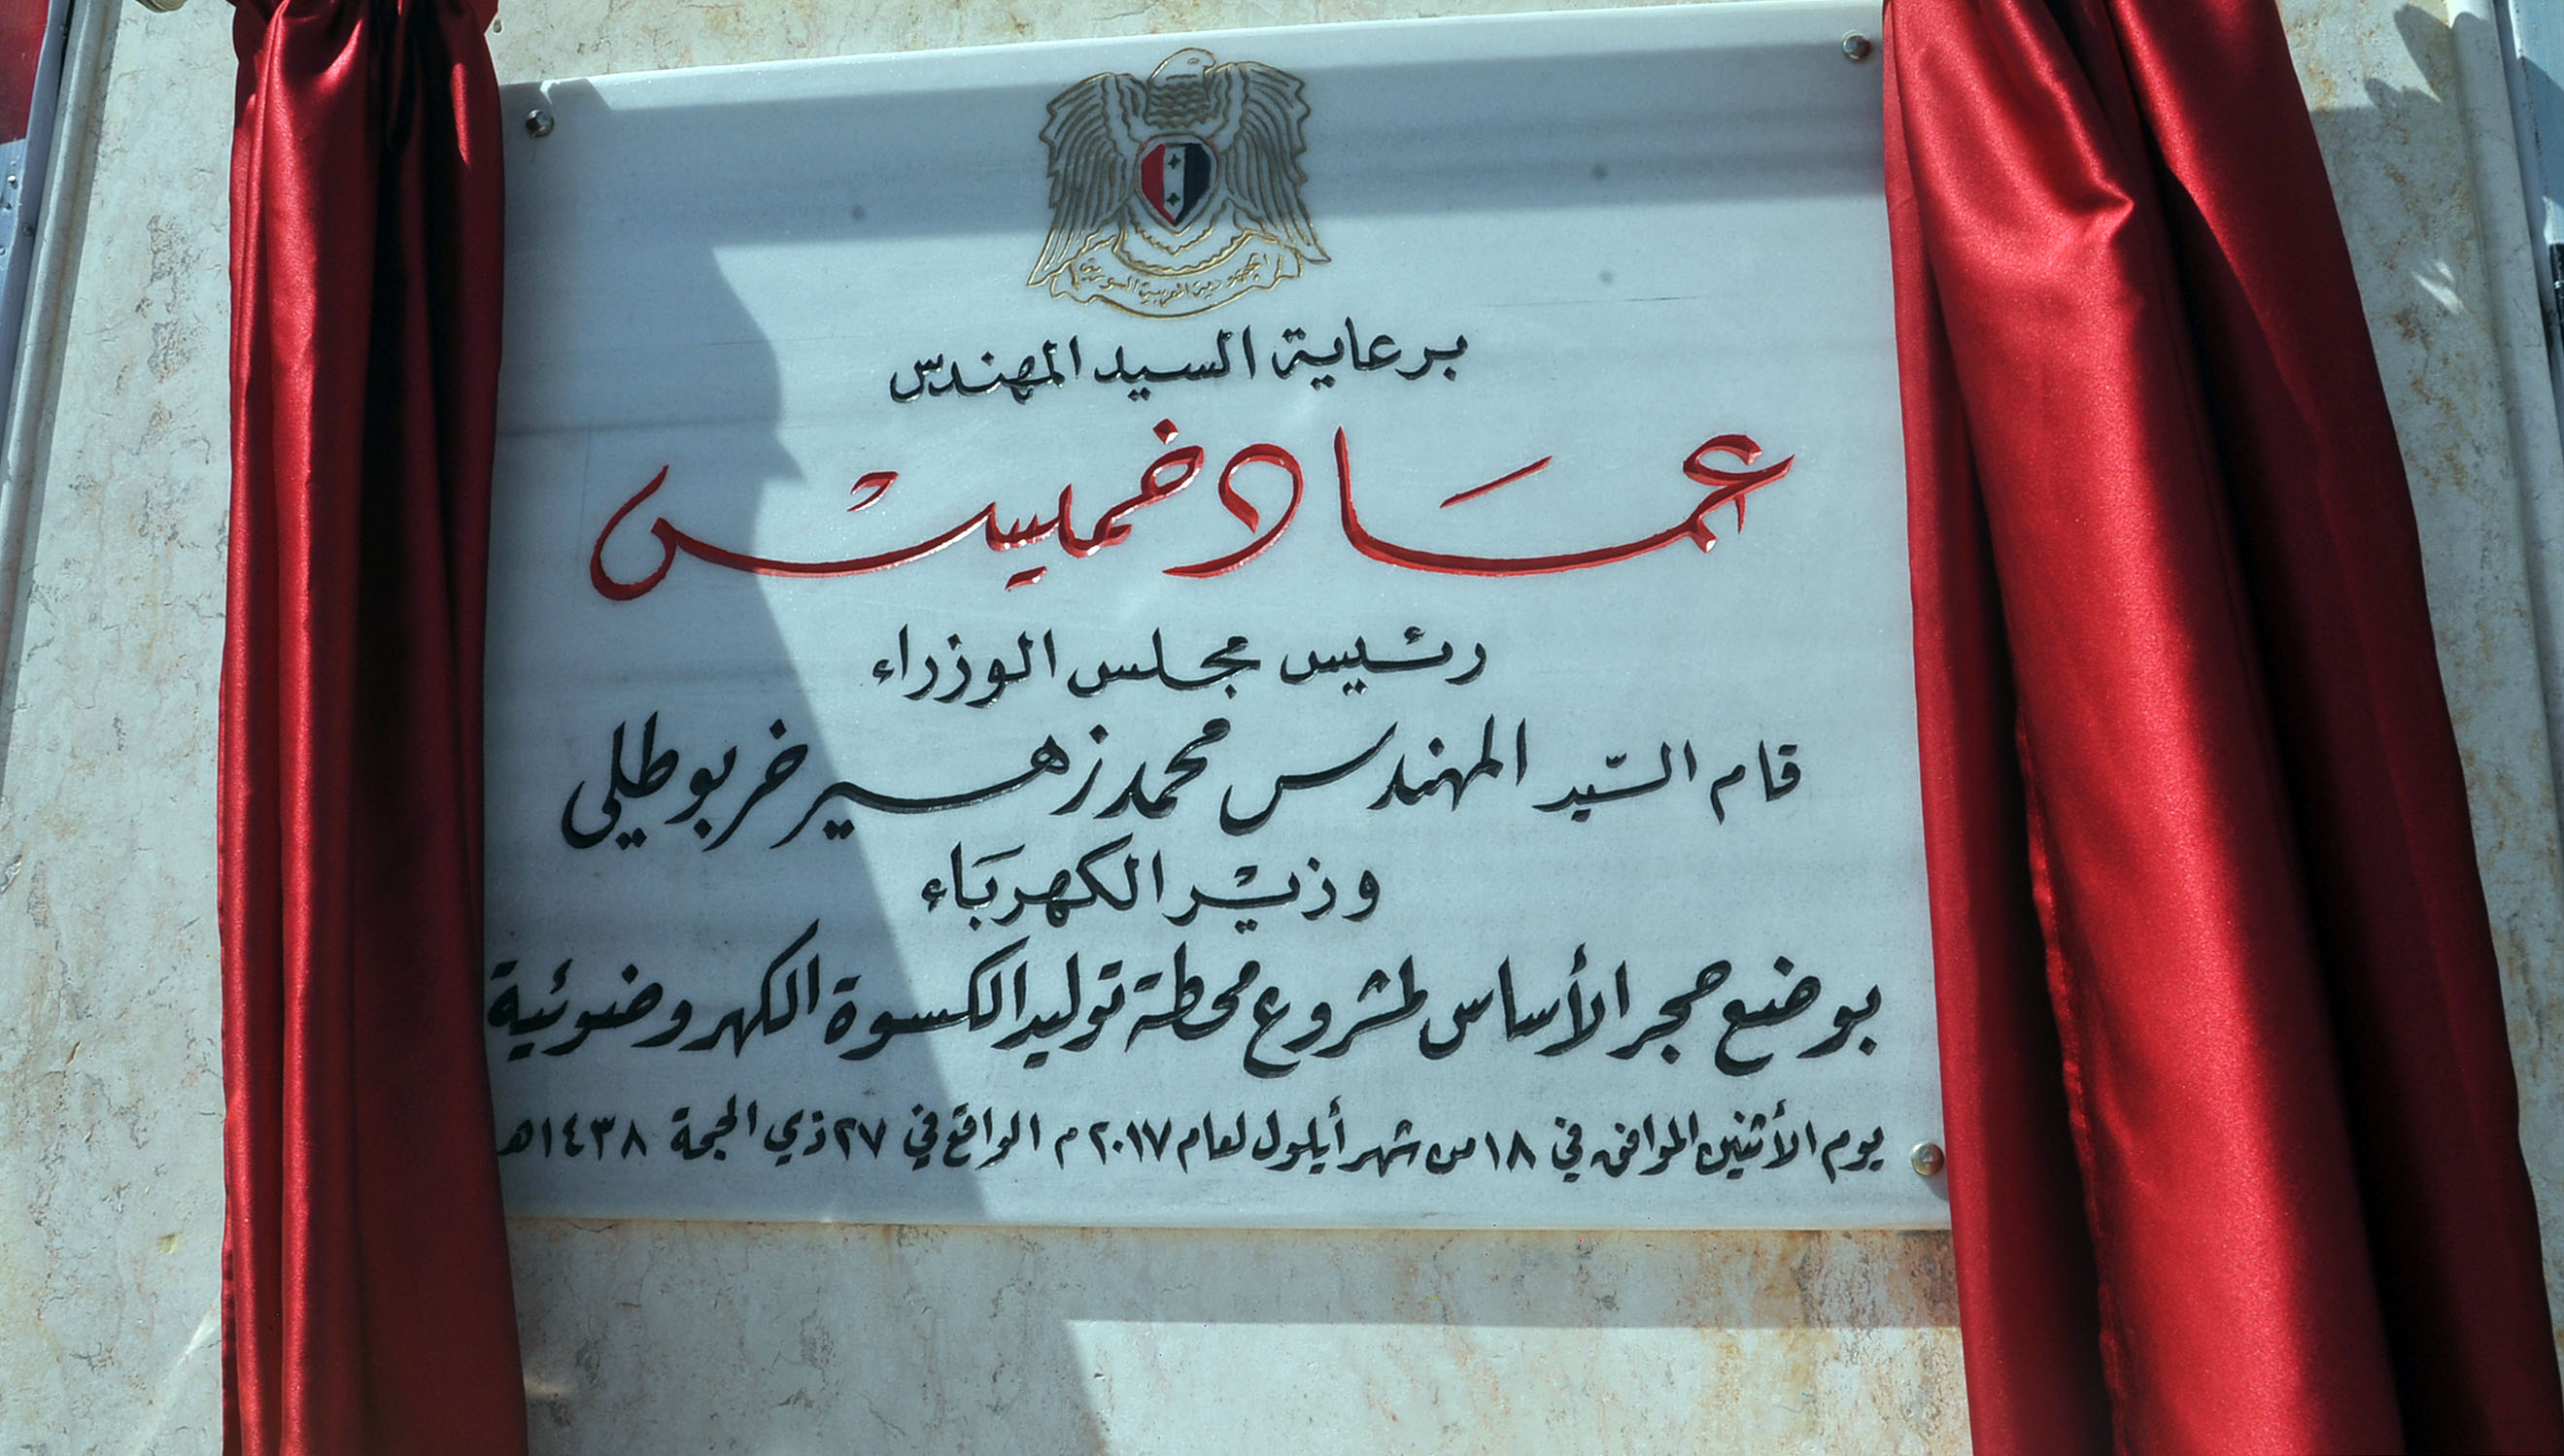 الجمهورية العربية السورية
برعاية السيد المهندس
عمَاد خميسْ
رئيس مجلس الوزراء
قام السّيد المهندس محمد زهير خربوطلي
وزيْر الكهربَاء
بوضع حجر الأساس لمشروع محطة توليد الكسوة الكهروضوئية
يوم الأثنين الموافق في ١٨ من شهر أيلول لعام ٢٠١٧ م الواقع في ٢٧ ذي الحجة ١٤٣٨هـ